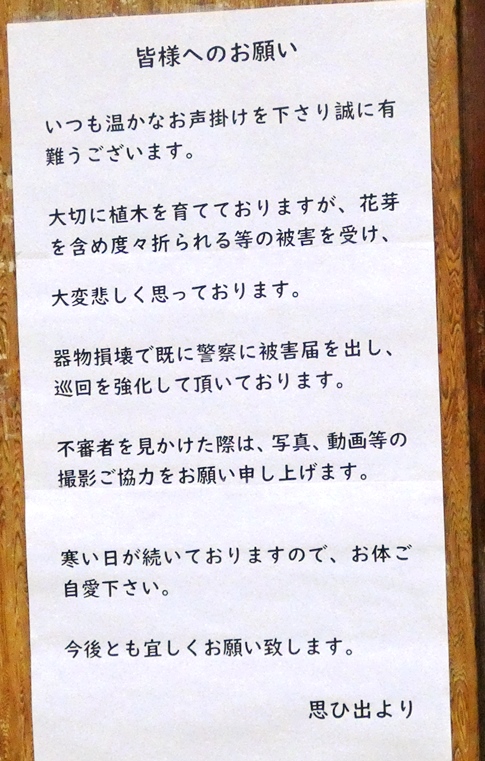 皆様へのお願い
いつも温かなお声掛けを下さり誠に有
難うございます。
大切に植木を育てておりますが、花芽
を含め度々折られる等の被害を受け、
大変悲しく思っております。
器物損壊で既に警察に被害届を出し、
巡回を強化して頂いております。
不審者を見かけた際は、写真、動画等の
撮影ご協力をお願い申し上げます。
寒い日が続いておりますので、お体ご
自愛下さい。
今後とも宜しくお願い致します。
思ひ出より